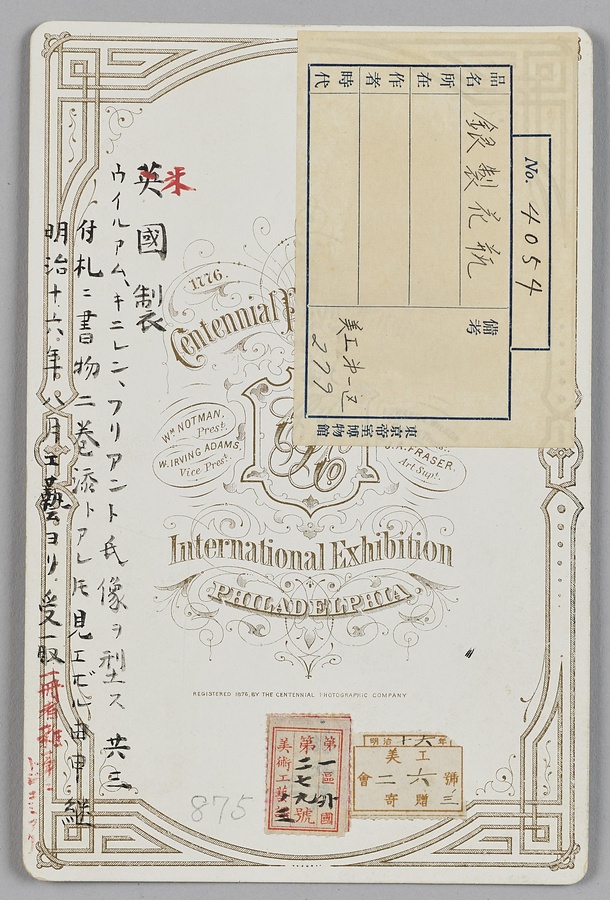 No. 4054
品名
銀製花瓶
所在
作者
時代
備考
美工第一区
279
東京帝室博物館
米
英國製
ウイルアム、キニレン、フリアント氏像ヲ型ス 共三
付札ニ書物二巻添トアレ𪜈見エザル由申継
明治十六年八月工藝ヨリ受取
1776.
Centennial
Wm NOTMAN,
Prest.
W. IRVING ADAMS,
Vice Prest.
FRASER.
Art Supt.
International Exhibition
PHILADELPHIA.
REGISTERED 1876, BY THE CENTENNIAL PHOTOGRAPHIC COMPANY
第一區外國
第二七九號
美術工藝
三
明治十六年
美工
會二六號
三
寄贈
875